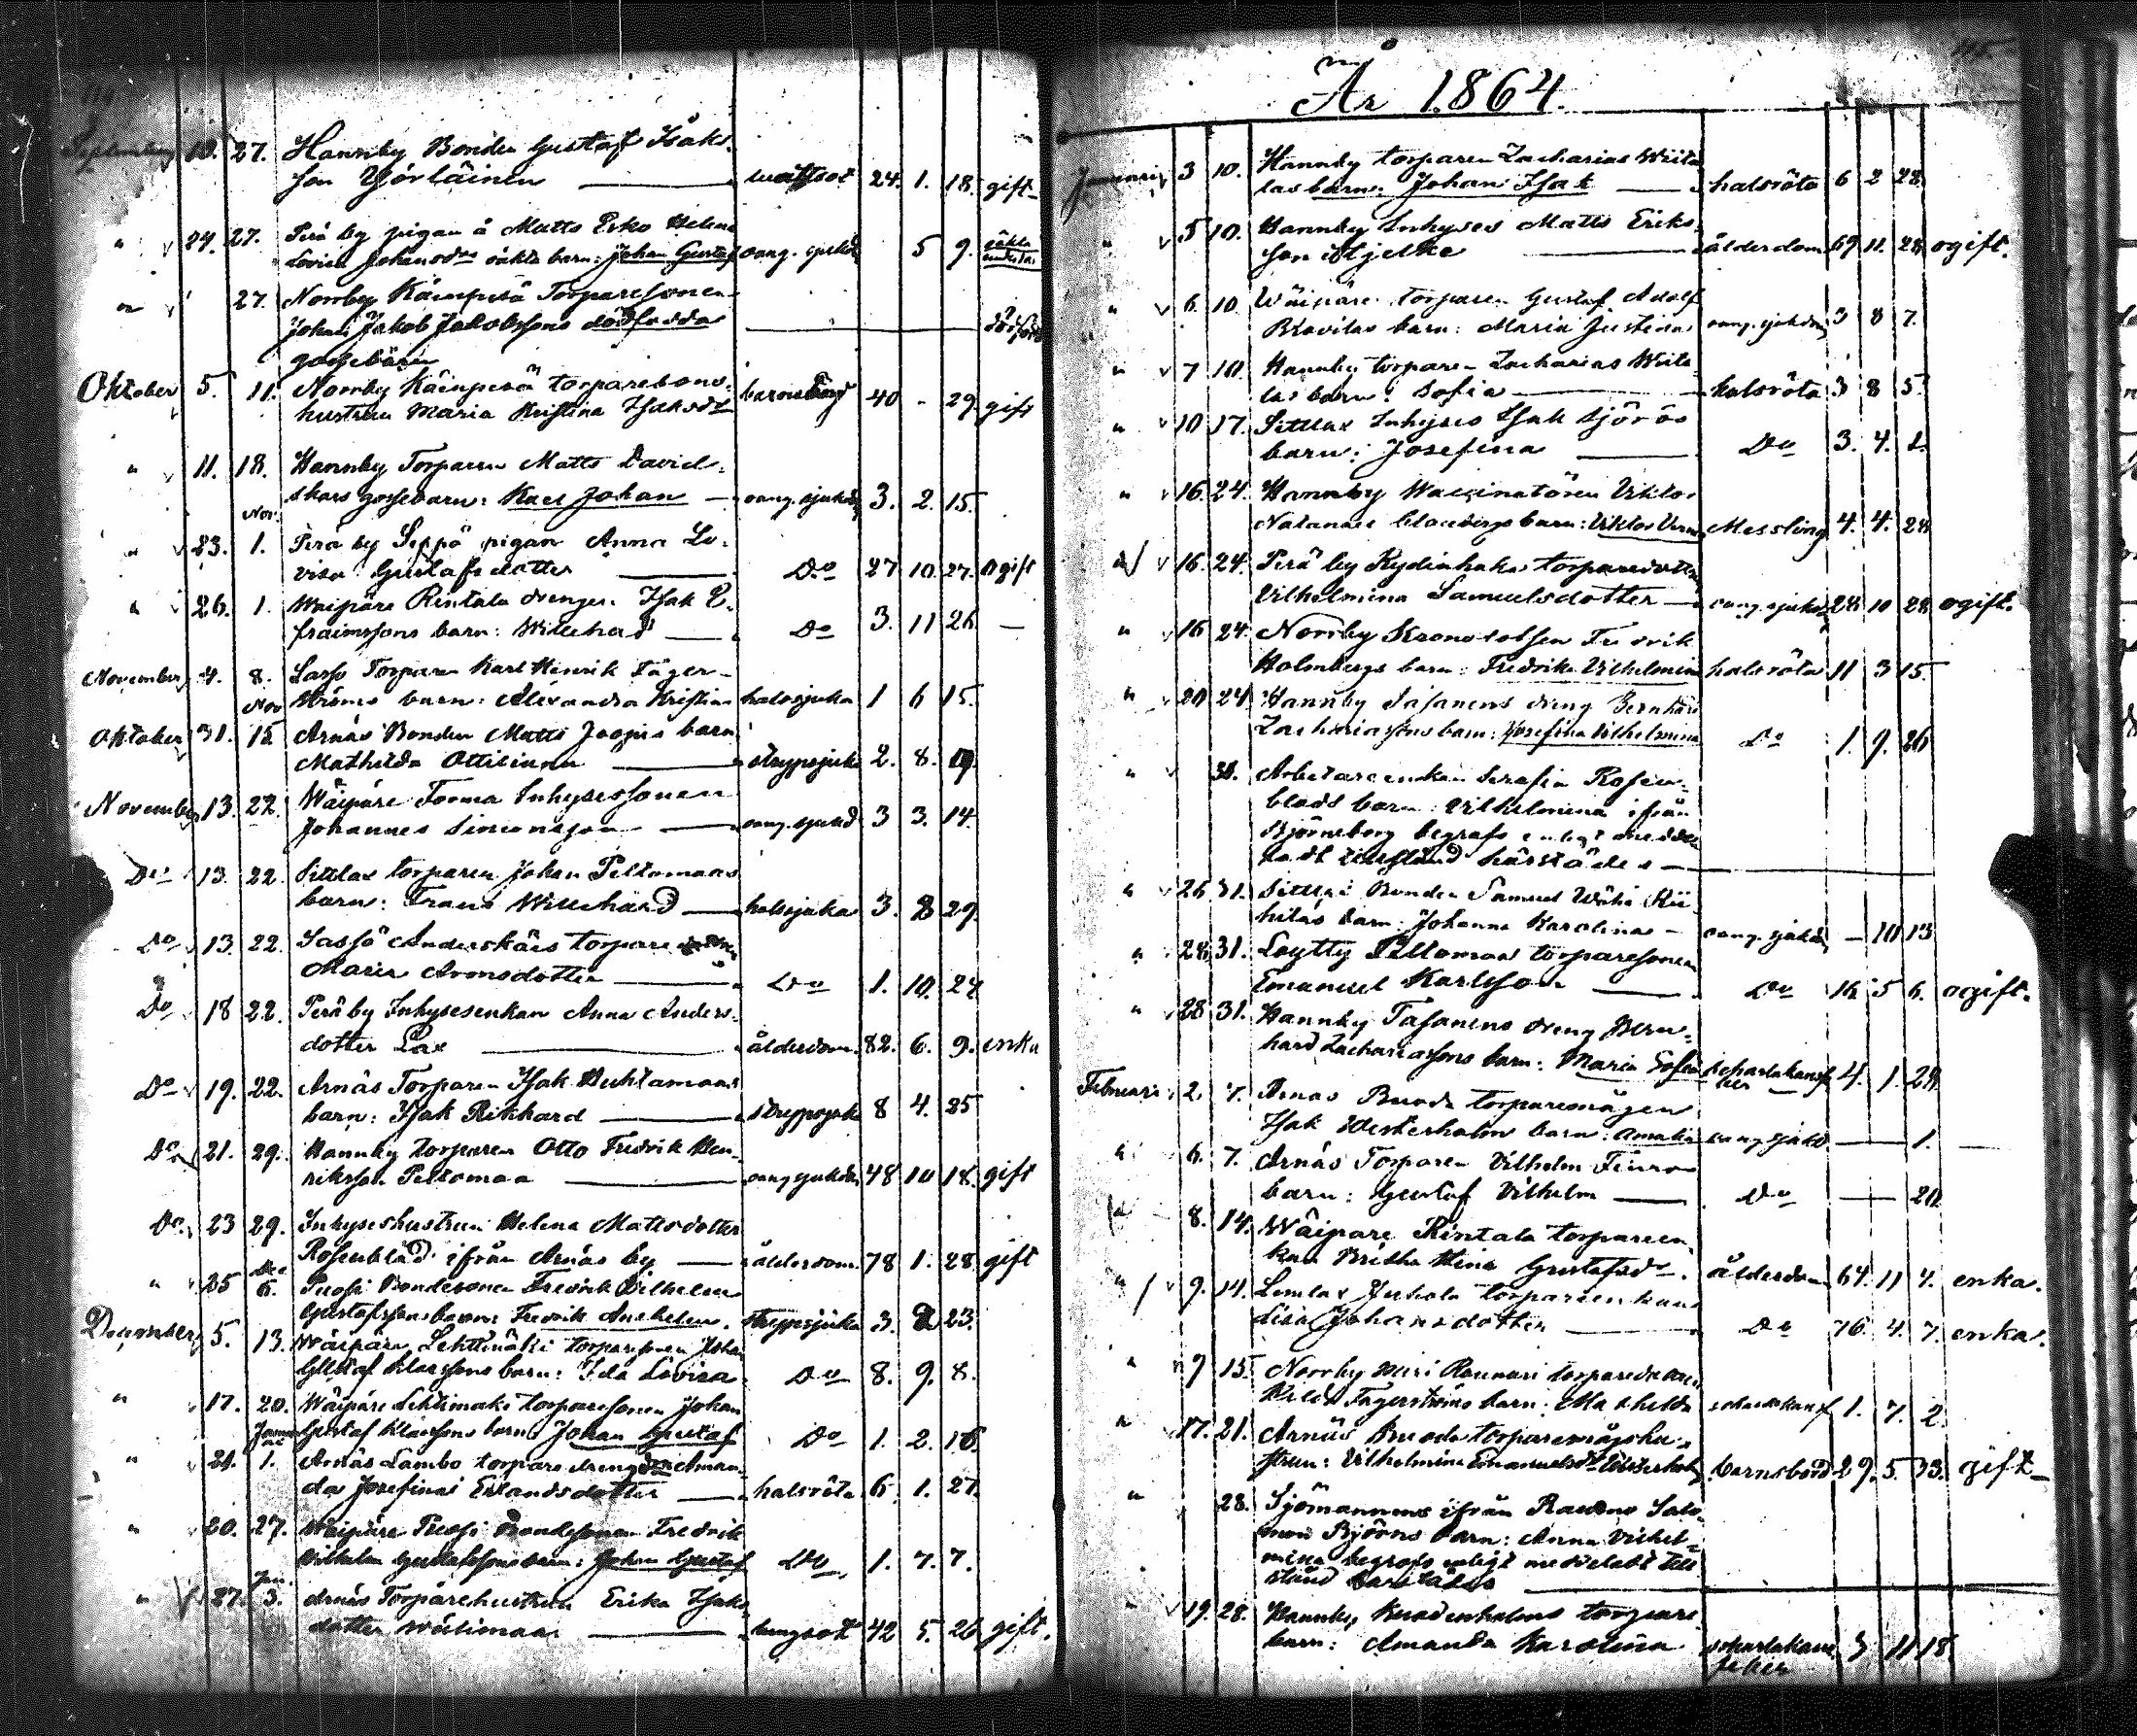 114
September 19. 27. Hannby Bonden Gustaf Isaks-
son Yörläinen wattsot 24. 1. 18. gift
" 24. 27. Perä by pigan å Matts Erko Helena
Lovisa Johansdr oäkta barn: Johan Gustaf oäng. sjukd 5 9.
" 27. Norrby Kämpesä Torparesonen
Johan Jakob Jakobssons dödfödda
gossebarn
Oktober 5. 11. Norrby Kämpesä torparesons-
hustrun Maria Kristina Isaksdr barnsbörd 40 - 29. gift
" 11. 18. Hannby Torparen Matts David-
skars gossebarn: Karl Johan oang. sjukd 3. 2. 15.
Nov.
" 23. 1. Perä by Seppä pigan Anna Lo-
visa Gustafsdotter Do 27 10. 27. ogift
" 26. 1. Waipäre Rintala drengen Isak E-
fraimssons barn: Willehad Do 3. 11 26 —
November 4. 8. Sassö Torparen Karl Henrik Fager-
Nov ströms barn: Alexandra Kristina halssjuka 1 6 15.
Oktober 31. 15 Arnäs Bonden Matts Joopis barn
Mathilda Ottiliana strypsjuka 2. 8. 19.
November 13. 22. Waipäre Torma Inhysessonen
Johannes Simonsson oang. sjukd 3 3. 14.
Do 13. 22. Sittlax torparen Johan Peltomaas
barn: Frans Willehard halssjuka 3. 8 29.
Do 13. 22. Sassö Anderskärs torpare
Maria Aronsdotter Do 1. 10. 24
Do 18 22. Perä by Inhysesenkan Anna Anders-
dotter Lax ålderdom. 82. 6. 9. enka
Do 19. 22. Arnäs Torparen Isak Huhtamaas
barn: Isak Rikhard strypsjuka 8 4. 25
Do 21. 29. Hannby torparen Otto Fredrik Hen-
riksson Peltomaa oang sjukdm 48 10 18. gift
Do. 23 29. Inhyseshustrun Helena Mattsdotter
Rosenblad ifrån Arnäs by ålderdom. 78 1. 28. gift
Dec
" 25 6. Puosi Bondesonen Fredrik Vilhelm
Gustafssons barn: Fredrik Anshelm. strypsjuka 3. 2 23.
December 5. 13. Waipäre Lehtimäki torparesonen Johan
Gustaf Klassons barn: Ida Lovisa Do 8. 9. 8.
" 17. 20. Waipäre Lehtimäki torparesonen Johan
Gustaf Klassons barn Johan Gustaf Do 1. 2. 16
" 21. 1. Arnäs Lambo torpare dreng Aman-
da Josefinas Erlandsdotter halsröta 6. 1. 27.
" 20. 27. Waipäre Puosi Bondesonen Fredrik
Vilhelm Gustafssons barn: Johan Gustaf Do 1. 7. 7.
Jan.
" 27. 3. Arnäs Torparehustrun Erika Isaks-
dotter Wästimaa lungsot 42 5. 26 gift.
115.
År 1864.
Januari 3 10. Hannby torparen Zacharias Wiita-
las barn: Johan Isak halsröta 6 2 28.
" 5 10. Hannby Inhyses Matts Eriks-
son Stjelke ålderdom 69 11. 28 ogift.
" 6. 10 Wäipäre torparen Gustaf Adolf
Blavilas barn: Maria Justina oang. sjukdm 3 8 7.
" 7 10. Hannby torparen Zacharias Wiita-
las barn: Sofia halsröta 3 8 5.
" 10 17. Sittlax Inhyses Isak Sjöros
barn: Josefina Do 3. 4. 1.
" 16. 24. Hannby Waccinatören Viktor
Natanael barn: Viktor Messling 4. 4. 28
" 16. 24. Perä by Rydinhaka torparedotter
Vilhelmina Samuelsdotter oang. sjukd 24 10 28 ogift.
" 16 24. Norrby Kronolotsen Fredrik
Holmbergs barn: Fredrika Vilhelmina halsröta 11 3 15.
" 20 24. Hannby Tasanens dreng Bernhard
Zachariassons barn: Josefina Vilhelmina Do 1. 9. 26
" 31. Arbetareenkan Serafia Rosen-
blads barn: Vilhelmina ifrån
Björneborg begrafs enligt medde-
ladt tillstånd härstädes
" 26 31. Sittlax Bonden Samuel Wähä Kii-
hilas barn: Johanna Karolina oang. sjukd — 10 13
" 28. 31. Löytty Peltomaa torparesonen
Emanuel Karlsson Do 16 5 6. ogift.
" 28 31. Hannby Tasanens dreng Bern-
hard Zachariassons barn: Maria Sofia scharlakansfe-
ber 4. 1. 29
Februari 2. 7. Arnäs Buoda torparemågen
Isak Westerholms barn: Amalia oang sjukd — 1. —
" 6. 7. Arnäs Torparen Vilhelm Finros
barn: Gustaf Vilhelm Do — 21
" 8. 14. Wäipäre Rintala torpareen-
kan Britha Stina Gustafsdr. ålderdom 64. 11 4. enka.
" 9. 14. Lemlax Juhola torpareenkan
Lisa Johansdotter Do 76. 4. 7. enka.
" 9 15. Norrby Raunari torpare
Fagerströms barn: Mathilda scharlakansf 1. 7. 2.
" 17. 21. Arnäs Buoda torparemågshu-
strun: Vilhelmina Emanuelsdr Westerholm barnsbörd 29. 5. 23. gift
" 28. Sjömannens ifrån Raumo Salo-
mon Björns barn: Anna Vilhel-
mina begrafs enligt meddeladt till-
stånd härstädes
" 19. 28. Hannby Buodenholms torpare
barn: Amanda Karolina scharlakans
feber 3 11 18.